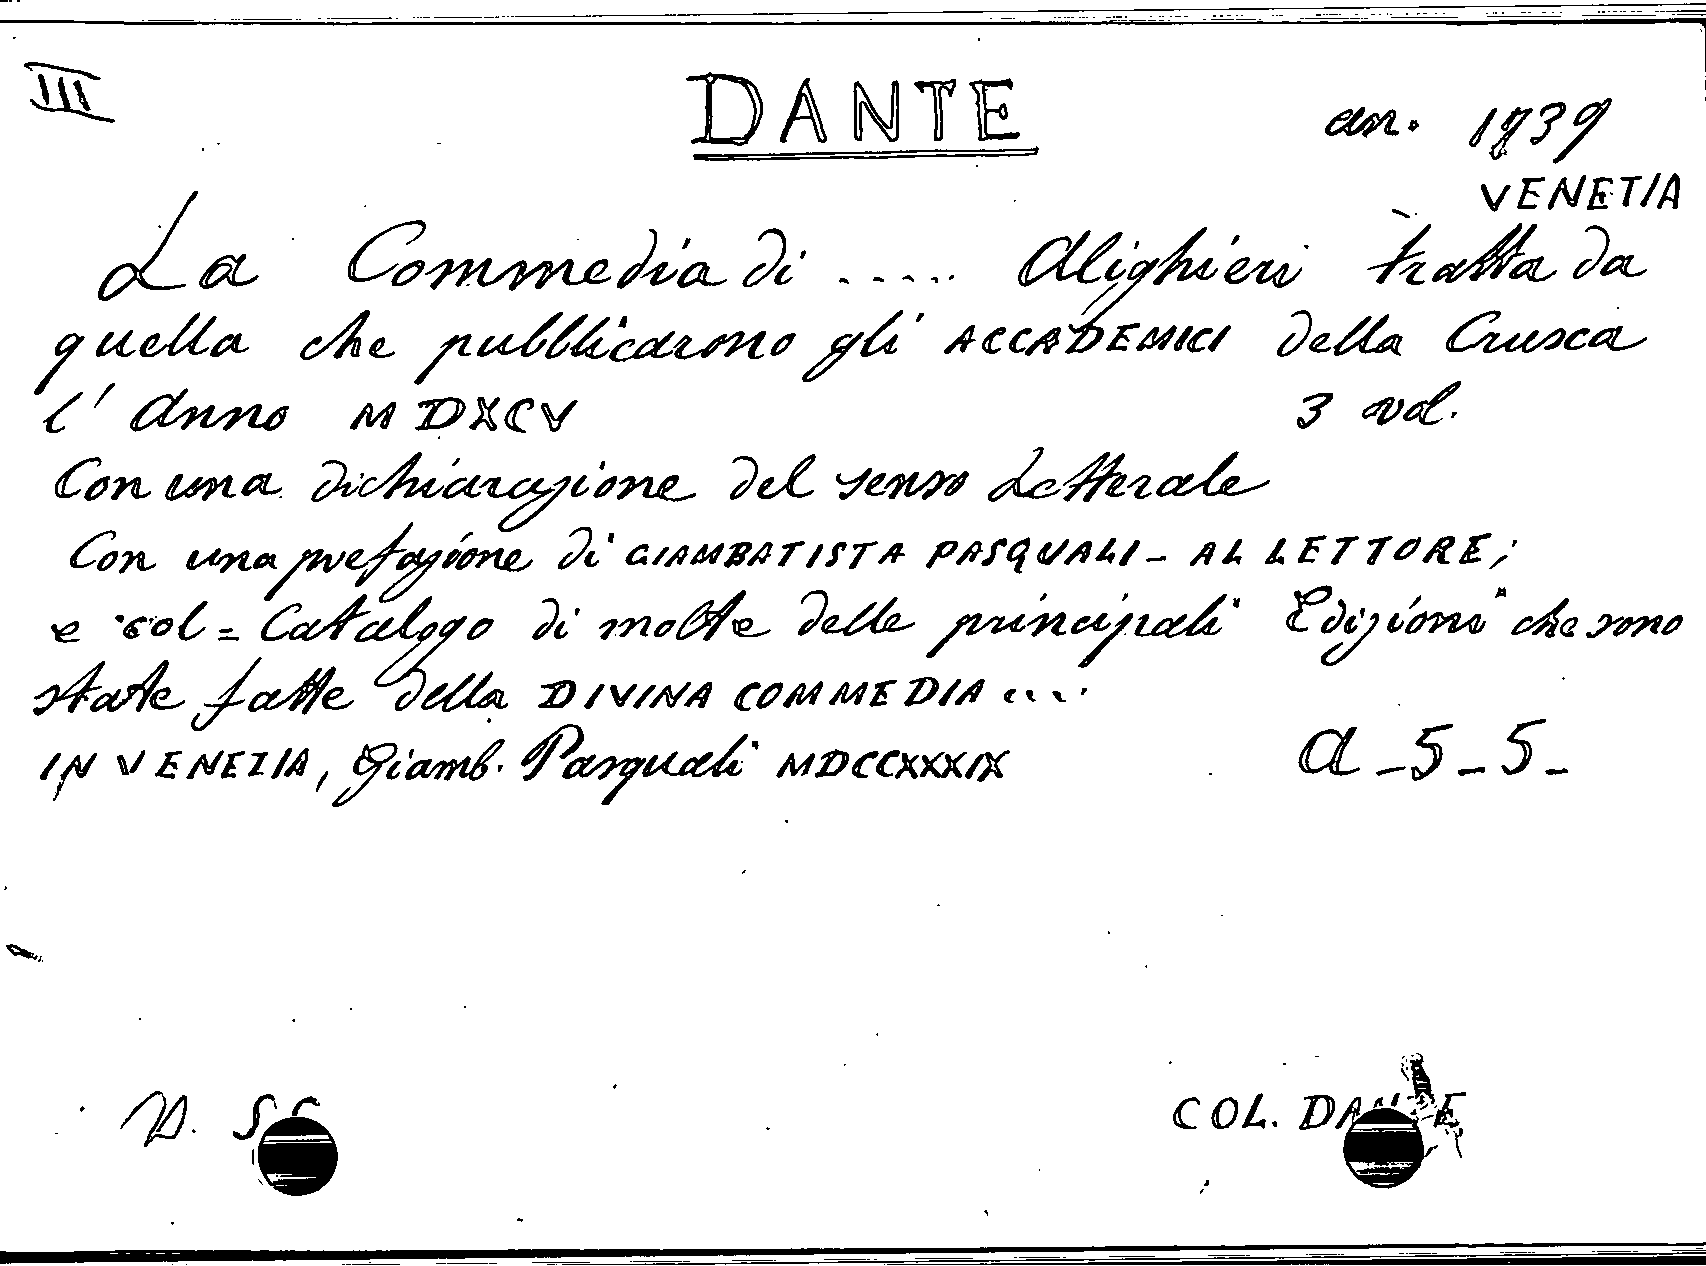 III
DANTE
an. 1739
VENETIA
La Commedia di ..... Alighieri tratta da
quella che pubblicarono gli ACCADEMICI della Crusca
l' Anno MDXCV 3 vol.
Con una dichiarazione del senso Letterale
Con una prefazione di GIAMBATISTA PASQUALI - AL LETTORE;
e col = Catalogo di molte delle principali Edizioni che sono
state fatte della DIVINA COMMEDIA ....
IN VENEZIA, Giamb. Pasquali MDCCXXXIX
a - 5 - 5 -
COL. DANTE